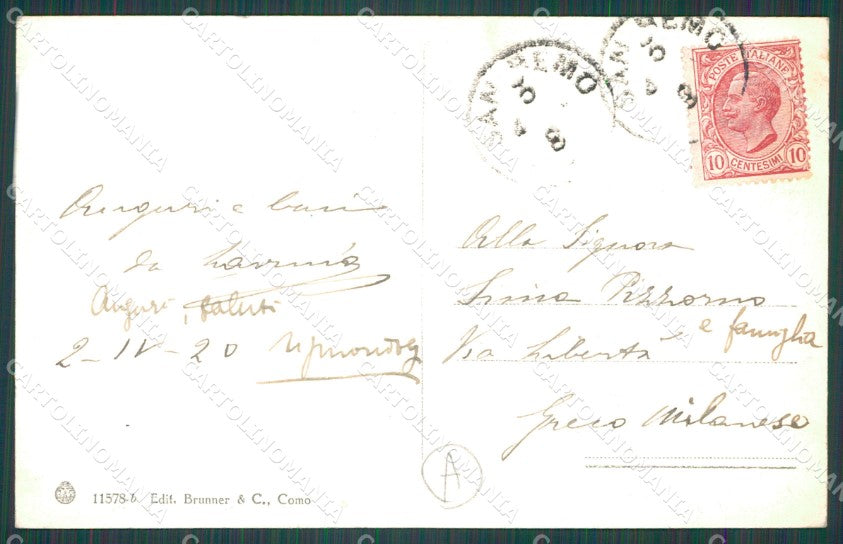 SAN REMO
SAN REMO
POSTE ITALIANE
10 CENTESIMI 10
Auguri e baci
da Lavinia
Auguri, saluti
2-IV-20
Alla Signora
Pizzorno
e famiglia
Via Libertà
Greco Milanese
A
11578-b Edit. Brunner & C., Como
CARTOLINOMANIA